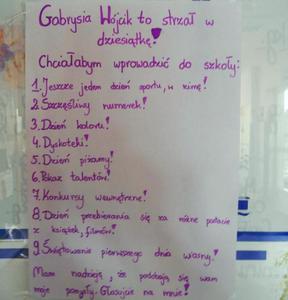 Gabrysia Wójcik to strzał w
dziesiątkę!
Chciałabym wprowadzić do szkoły:
1. Jeszcze jeden dzień sportu, w zimę!
2. Szczęśliwy numerek!
3. Dzień koloru!
4. Dyskoteki!
5. Dzień piżamy!
6. Pokaz talentów!
7. Konkursy wewnętrzne!
8. Dzień przebierania się za różne postacie
z książek, filmów!
9. Świętowanie pierwszego dnia wiosny!
Mam nadzieję, że podobają się wam
moje pomysły. Głosujcie na mnie!